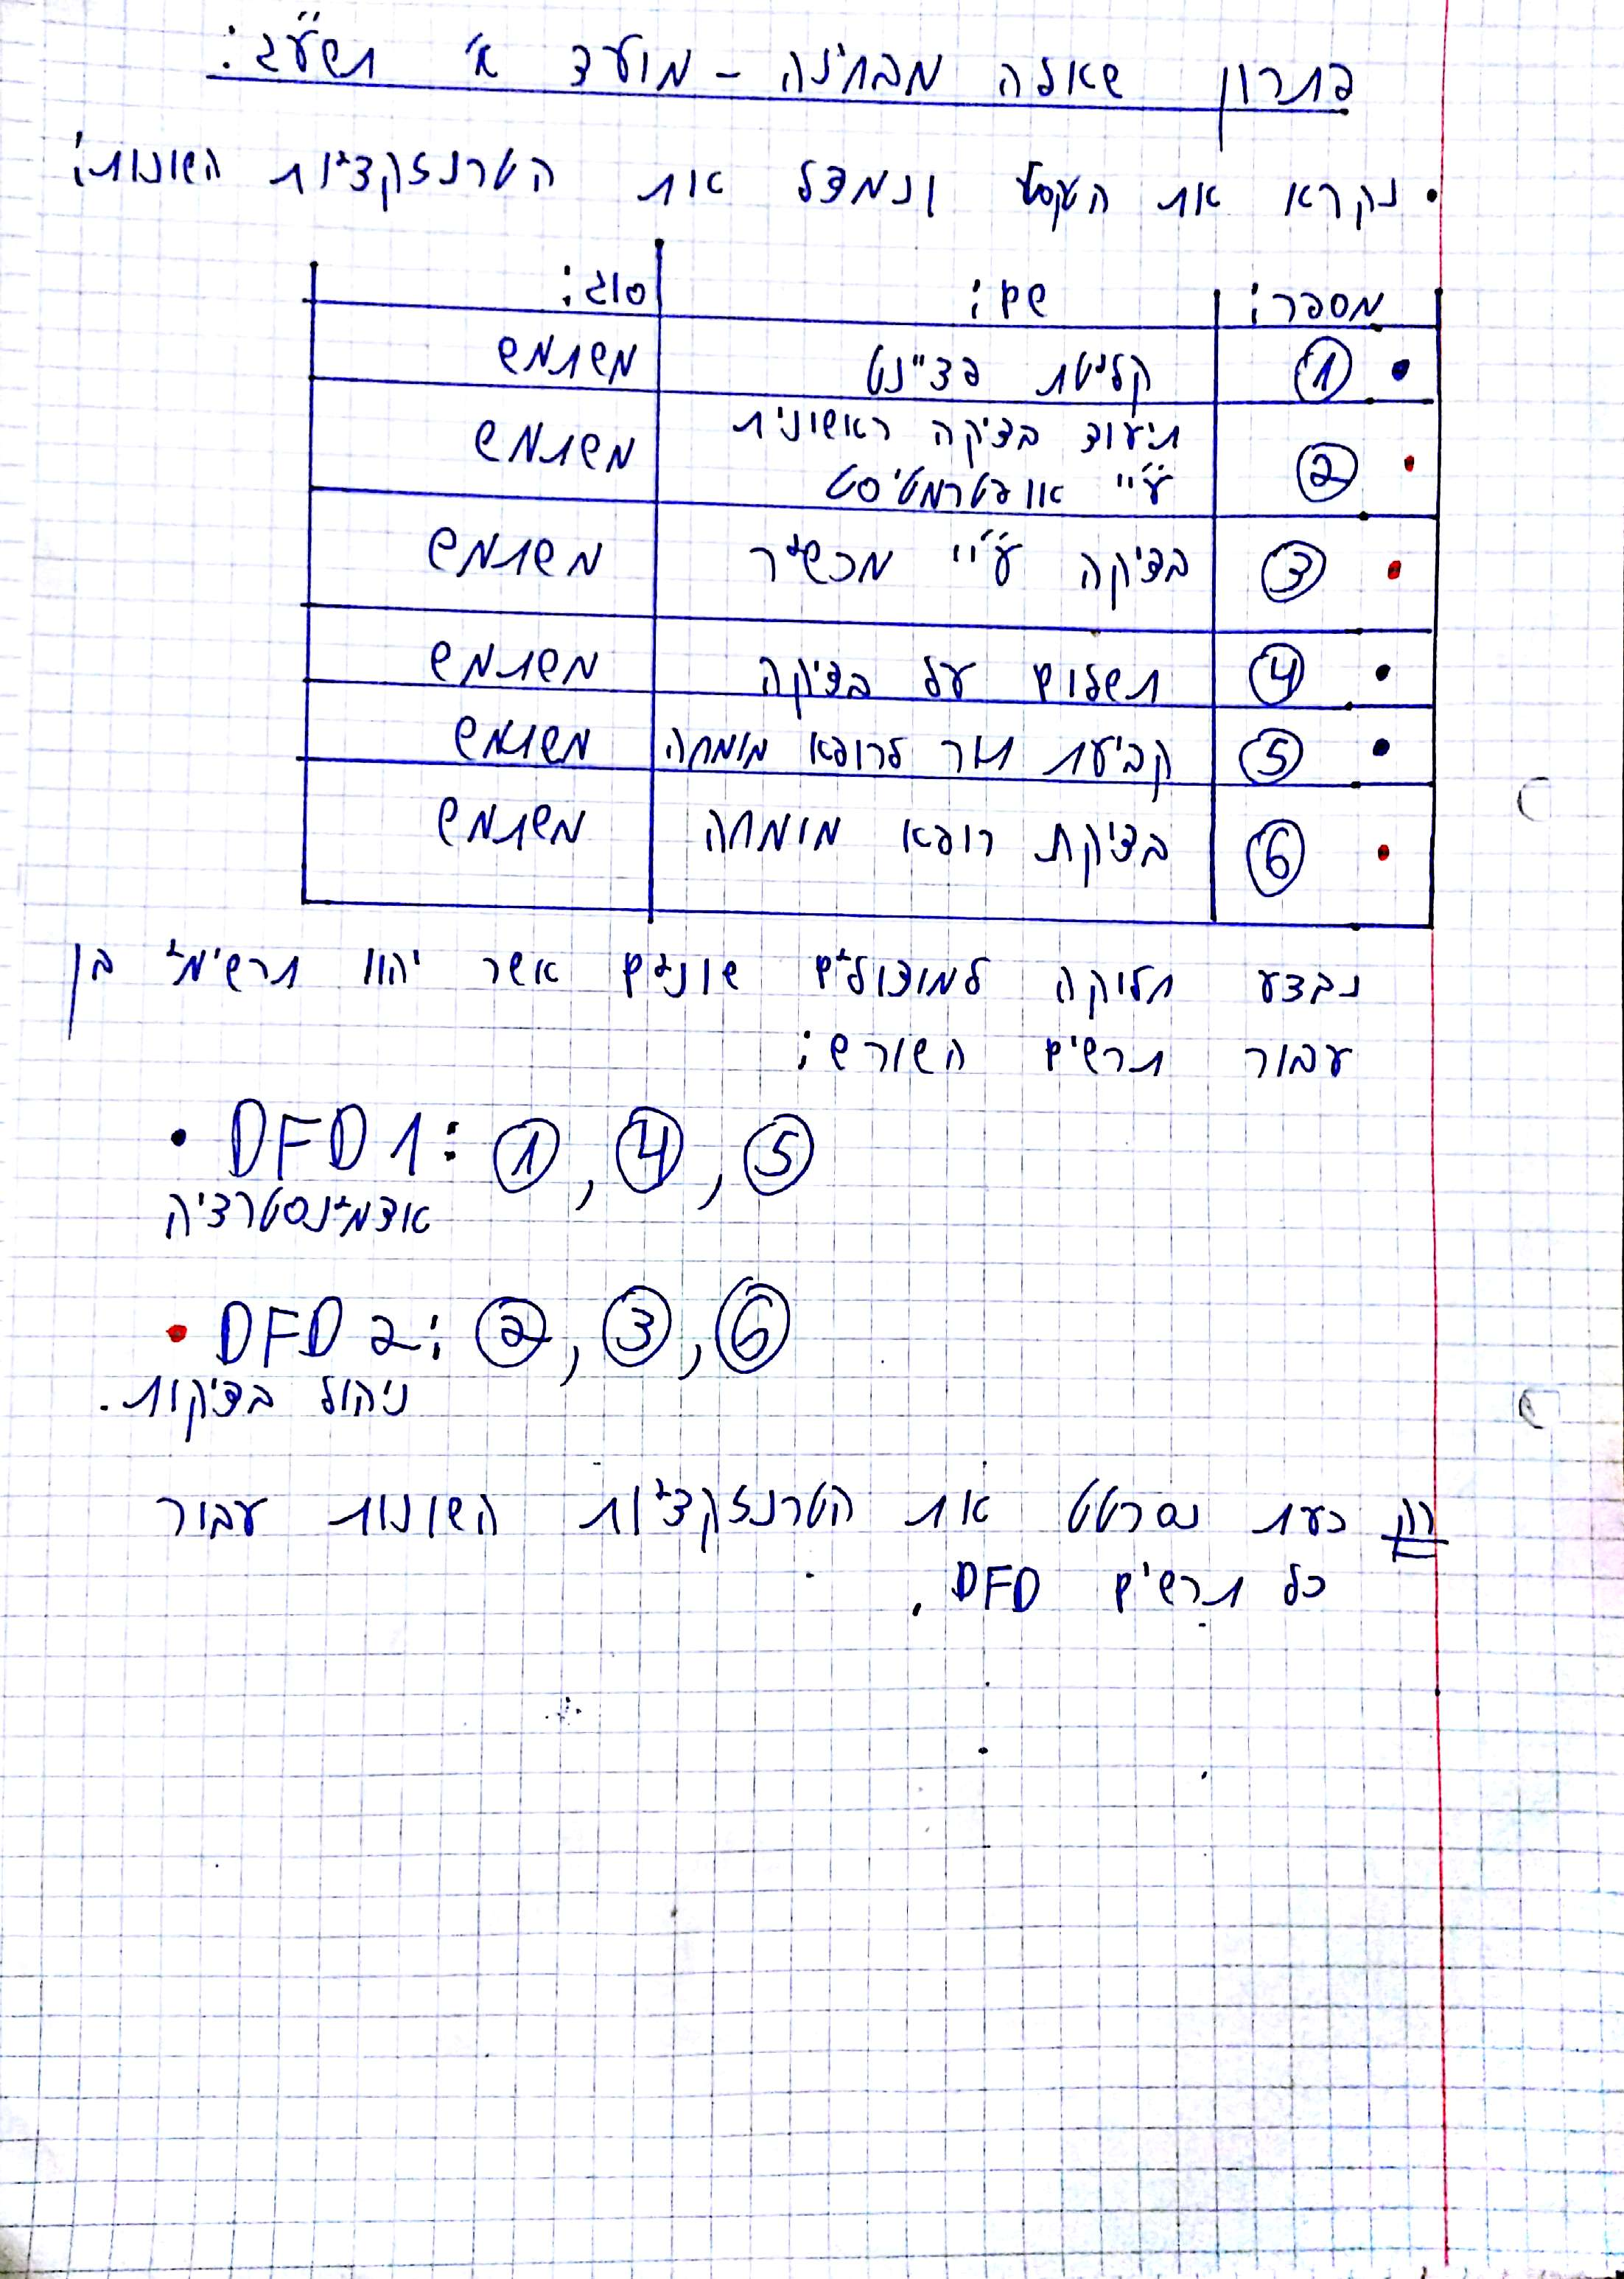 פתרון שאלה מבחינה - מועד א' תשע"ג:
• נקרא את הטקסט ונמדל את הטרנזקציות השונות:
מספר: שם: סוג:
• ① קליטת פציינט משתמש
• ② תיעוד בדיקה ראשונית ע"י אופטרמטיסט משתמש
• ③ בדיקה ע"י מכשיר משתמש
• ④ תשלום על בדיקה משתמש
• ⑤ קביעת תור לרופא מומחה משתמש
• ⑥ בדיקת רופא מומחה משתמש
נבצע חלוקה למודולים שונים אשר יהוו תרשימי בן
עבור תרשים השורש:
• DFD 1: ①, ④, ⑤
אדמינסטרציה
• DFD 2: ②, ③, ⑥
ניהול בדיקות.
רק כעת נסרטט את הטרנזקציות השונות עבור
כל תרשים DFD.